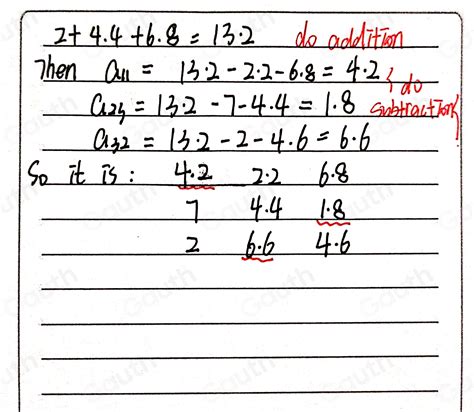 2+4.4+6.8=13.2 do addition
Then a11 = 13.2-2.2-6.8=4.2 { do
a23 = 13.2-7-4.4=1.8 subtraction}
a32 = 13.2-2-4.6=6.6
So it is: 4.2 2.2 6.8
7 4.4 1.8
2 6.6 4.6